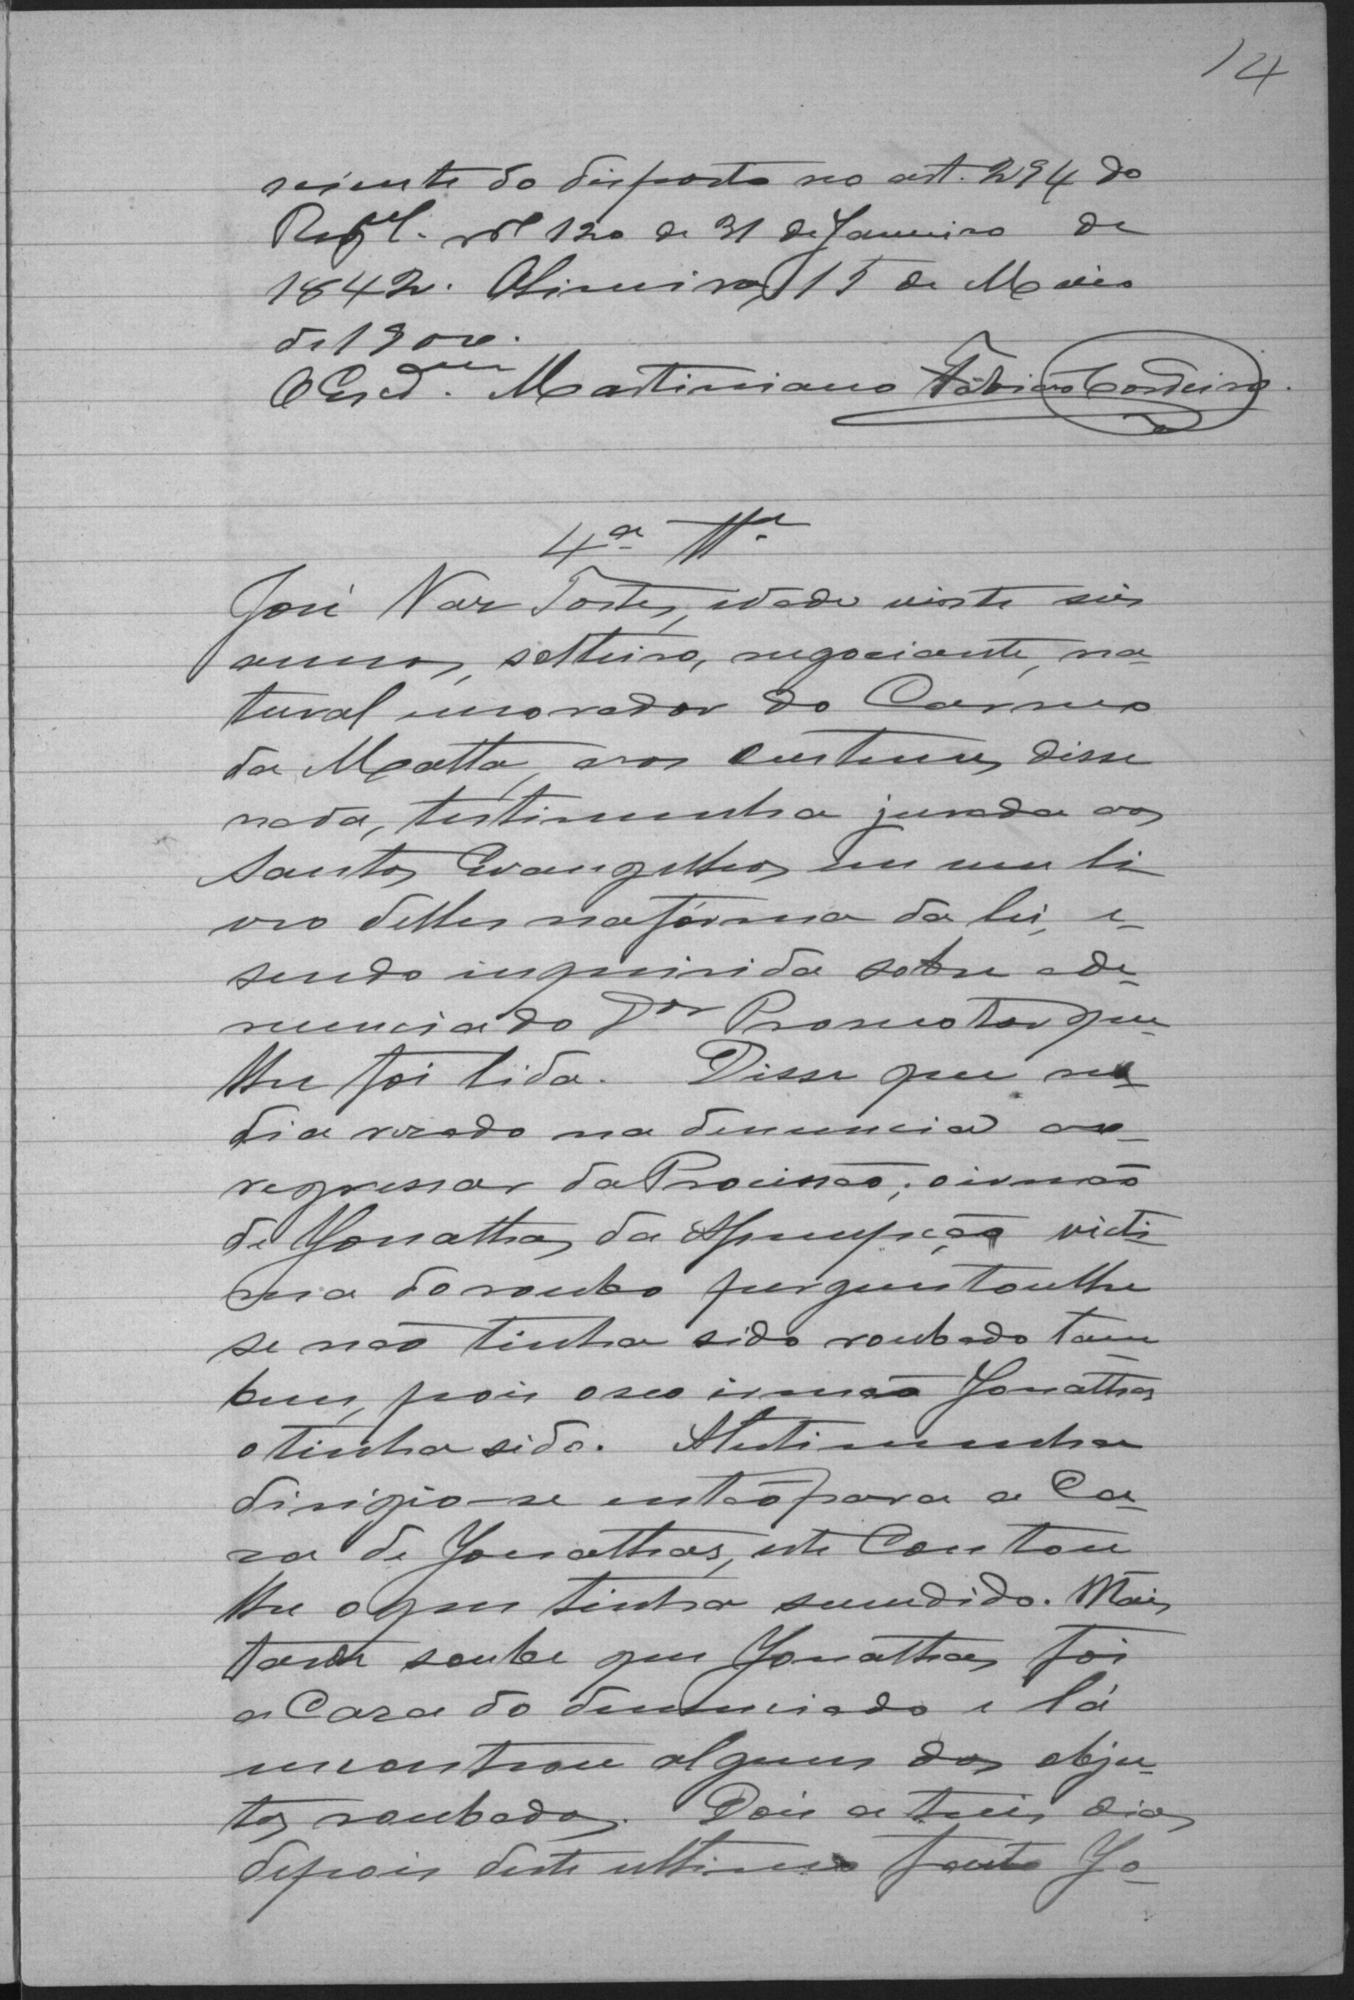 14
sciente do disposto no art. 294 do
Regl. nº 120 de 31 de Janeiro de
1842. Oliveira, 15 de Maio
de 1900.
O Escrm. Martiniano Fabiano Cordeiro.
4ª Ttª
José Vaz Tostes, idade vinte seis
annos, solteiro, negociante, na-
tural e morador do Carmo
da Matta, aos custumes disse
nada, testimunha jurada aos
Santos Evangelhos em um li
vro delles na forma da lei, e-
sendo inquirida sobre a de-
nuncia do Dor Promotor que-
lhe foi lida. Disse que no
dia rezado na denuncia ao-
regressar da Procissão, o irmão
de Jonathas da Assumpção victi
ma do roubo perguntoulhe
se não tinha sido roubado tam
bem, pois o seo irmão Jonathas
o tinha sido. A testimunha
dirigio-se então para a Ca-
za de Jonathas, este Contou
lhe o que tinha sucedido. Mais
tarde soube que Jonathas foi
a Caza do denunciado e lá
encontrou alguns dos obje-
tos roubados. Dois a treis dias
depois deste ultimo facto Jo-